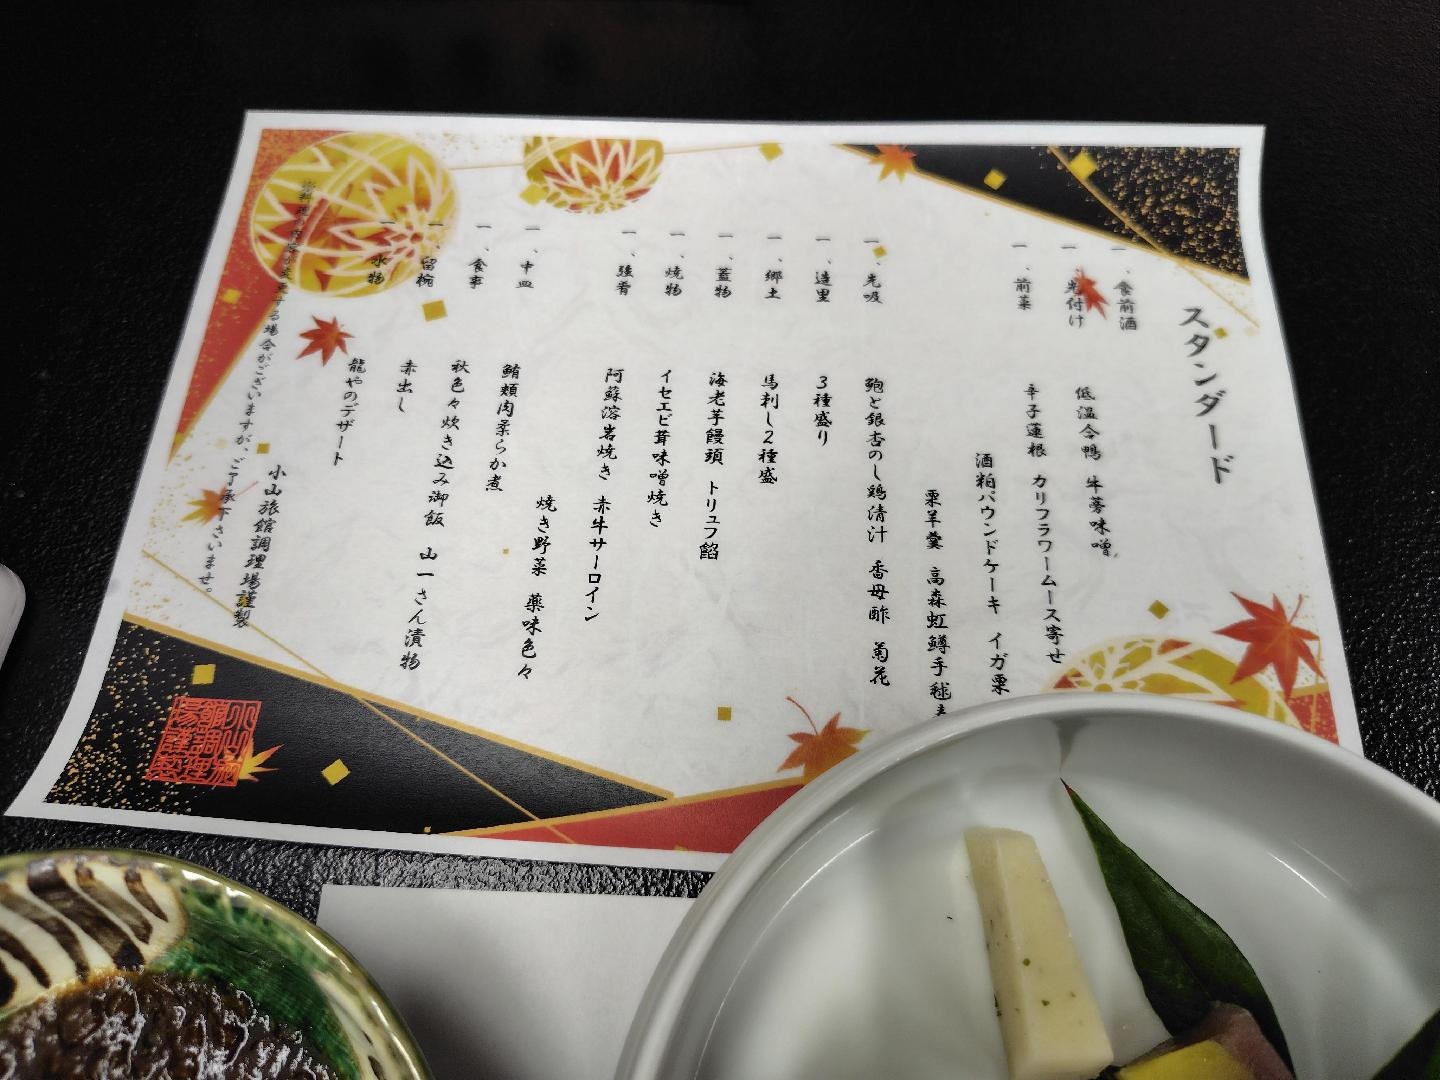 スタンダード
一、食前酒
一、先付け 低温合鴨 牛蒡味噌
一、前菜 辛子蓮根 カリフラワームース寄せ
酒粕パウンドケーキ イガ栗
栗羊羹 高森虹鱒手毬
一、先吸 鮑と銀杏のし鶏清汁 香母酢 菊花
一、造里 3種盛り
一、郷土 馬刺し2種盛
一、蓋物 海老芋饅頭 トリュフ餡
一、焼物 イセエビ茸味噌焼き
一、強肴 阿蘇溶岩焼き 赤牛サーロイン
焼き野菜 薬味色々
一、中皿 鮪頬肉柔らか煮
一、食事 秋色々炊き込み御飯 山一さん漬物
一、留椀 赤出し
一、水物 龍やのデザート
小山旅館調理場謹製
が変更する場合がございますが、ご了承下さいませ。
小山旅館調理場謹製